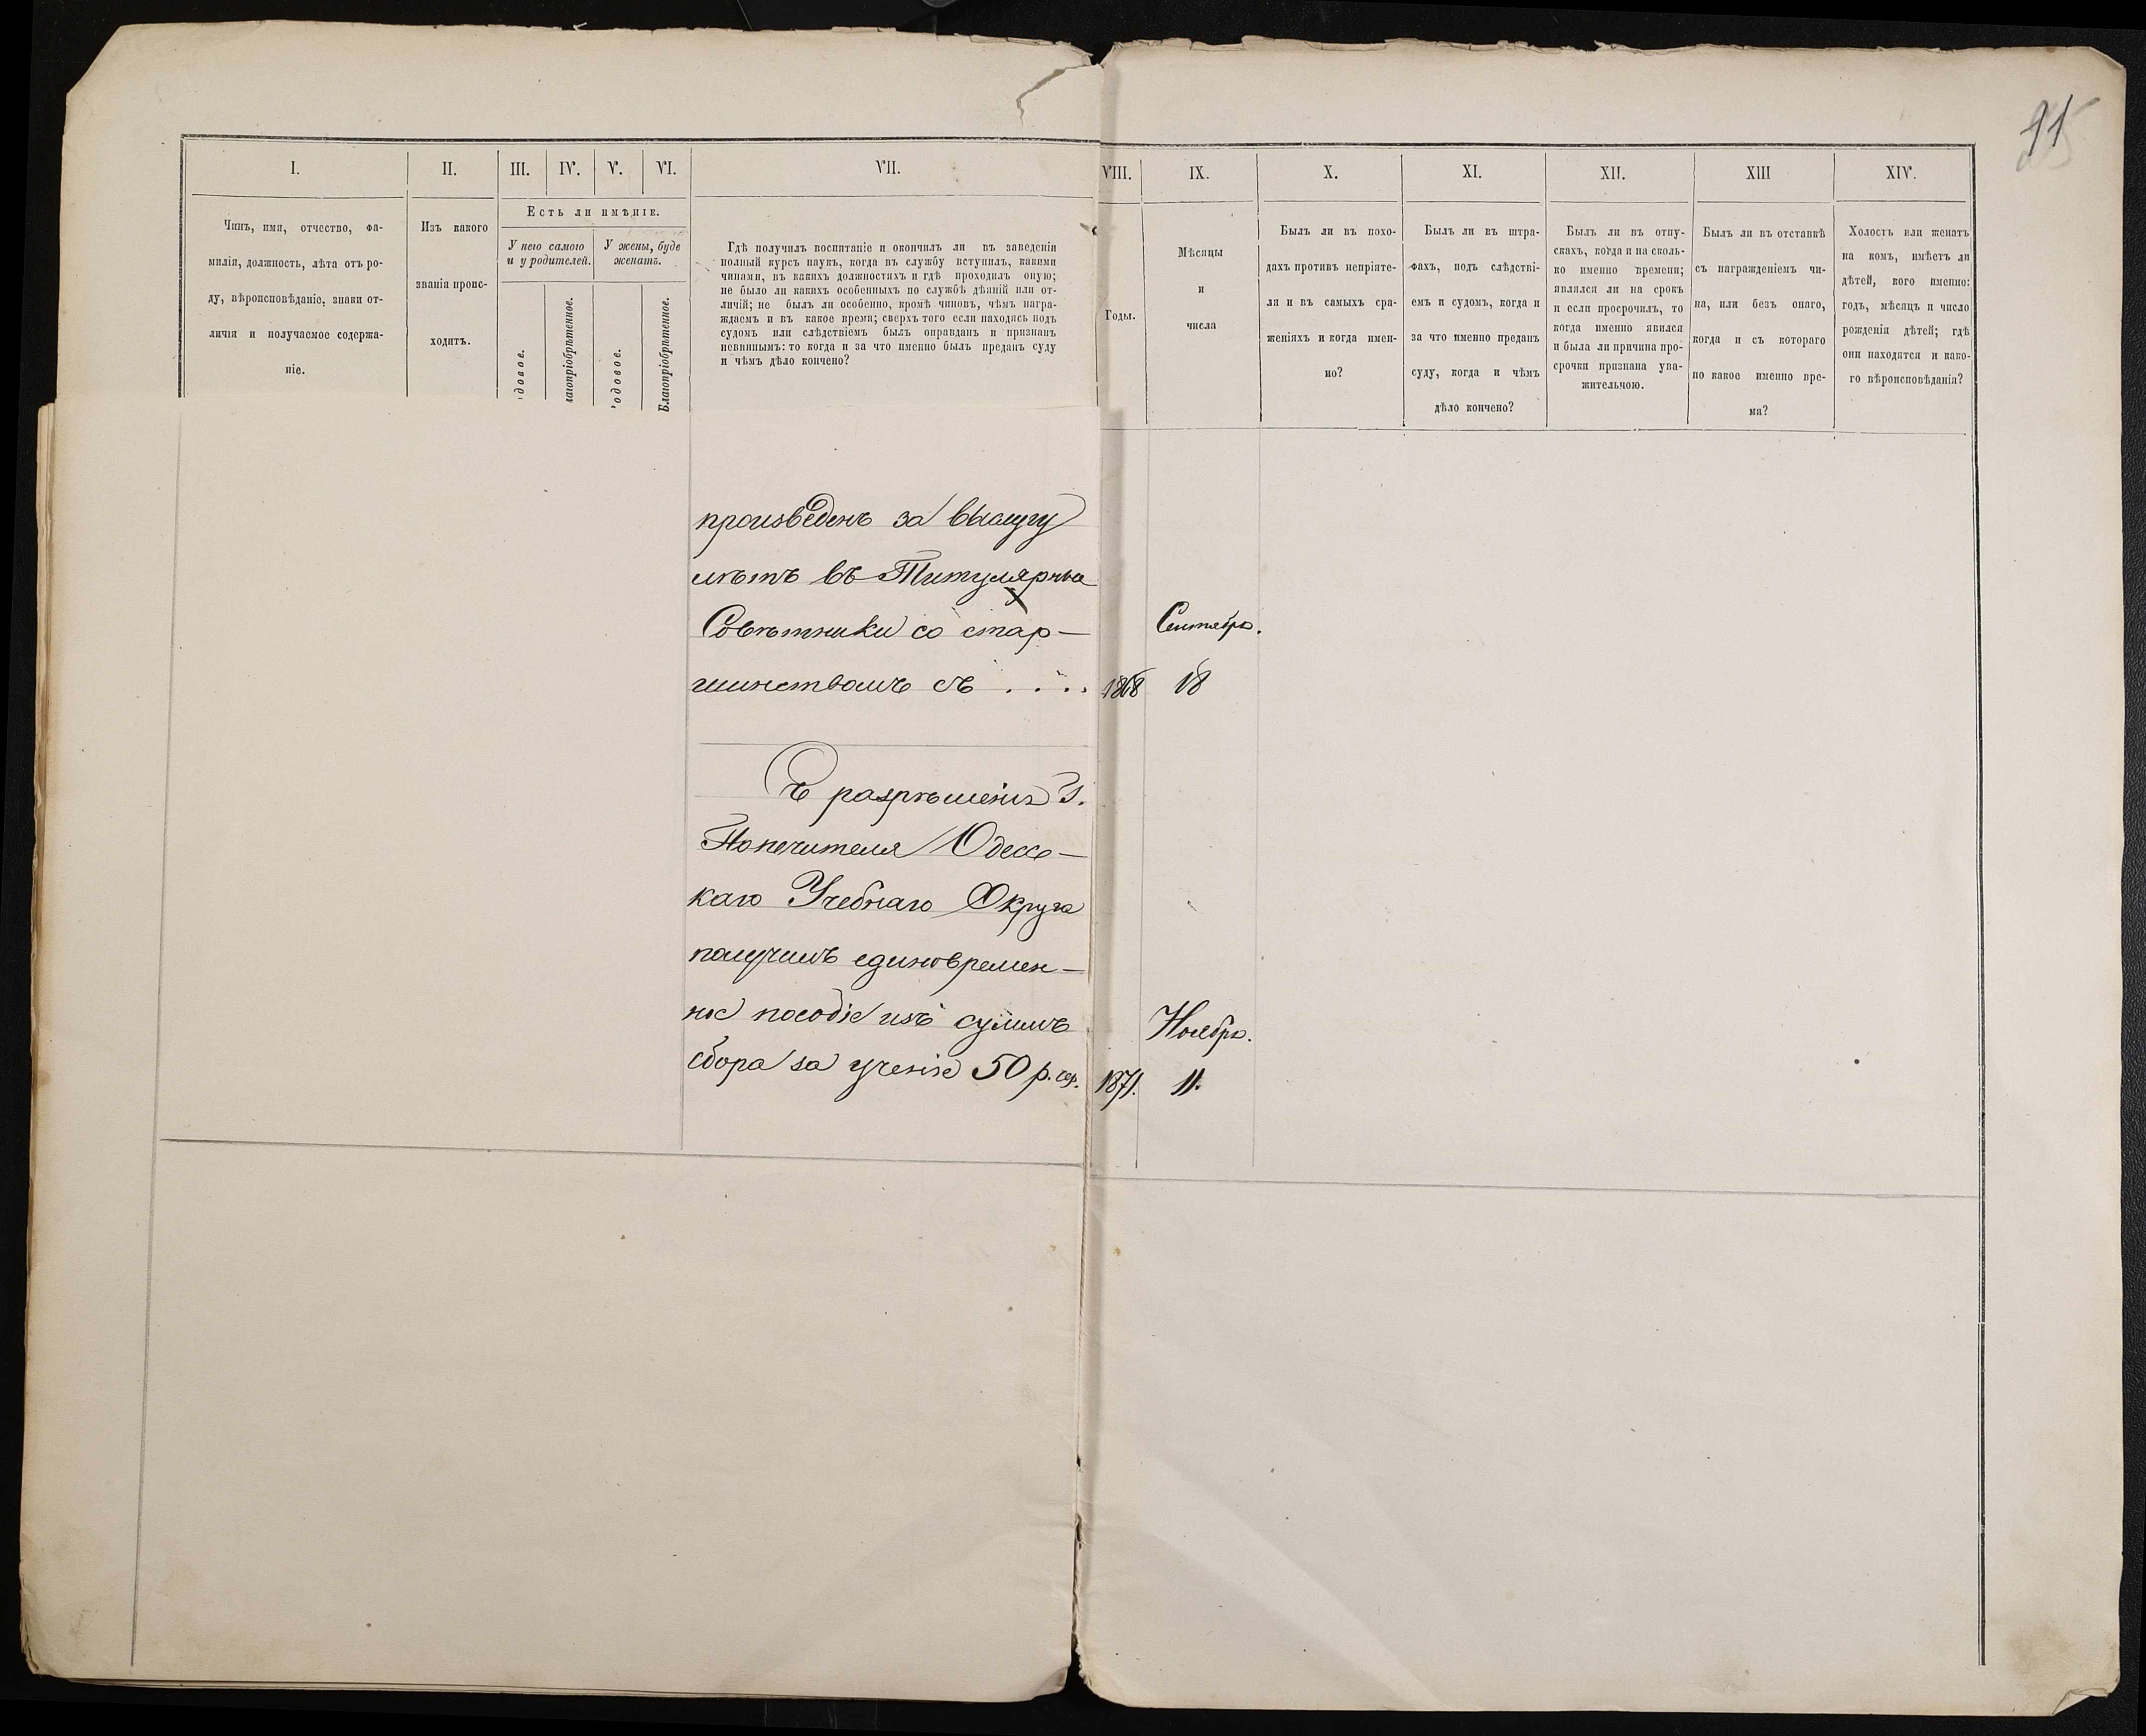 91
I.
II.
III.
IV.
V.
VI.
VII.
VIII.
IX.
X.
XI.
XII.
XIII
XIV.
Чинъ, имя, отчество, фа-
милія, должность, лѣта отъ ро-
ду, вѣроисповѣданіе, знаки от-
личія и получаемое содержа-
ніе.
Изъ какого
званія проис-
ходитъ.
Есть ли имѣніе.
У него самого
и у родителей.
У жены, буде
женатъ.
одовое.
лагопріобрѣтенное.
одовое.
Благопріобрѣтенное.
Гдѣ получилъ воспитаніе и окончилъ ли въ заведеніи
полный курсъ наукъ, когда въ службу вступилъ, какими
чинами, въ какихъ должностяхъ и гдѣ проходилъ оную;
не было ли какихъ особенныхъ по службѣ дѣяній или от-
личій; не былъ ли особенно, кромѣ чиновъ, чѣмъ награ-
ждаемъ и въ какое время; сверхъ того если находясь подъ
судомъ или слѣдствіемъ былъ оправданъ и признанъ
невиннымъ: то когда и за что именно былъ преданъ суду
и чѣмъ дѣло кончено?
Годы.
Мѣсяцы
и
числа
Былъ ли въ похо-
дахъ противъ непріяте-
ля и въ самыхъ сра-
женіяхъ и когда имен-
но?
Былъ ли въ штра-
фахъ, подъ слѣдстві-
емъ и судомъ, когда и
за что именно преданъ
суду, когда и чѣмъ
дѣло кончено?
Былъ ли въ отпу-
скахъ, когда и на сколь-
ко именно времени;
являлся ли на срокъ
и если просрочилъ, то
когда именно явился
и была ли причина про-
срочки признана ува-
жительною.
Былъ ли въ отставкѣ
съ награжденіемъ чи-
на, или безъ онаго,
когда и съ котораго
по какое именно вре-
мя?
Холостъ или женатъ
на комъ, имѣетъ ли
дѣтей, кого именно:
годъ, мѣсяцъ и число
рожденія дѣтей; гдѣ
они находятся и како-
го вѣроисповѣданія?
произведенъ за выслугу
лѣтъ въ Титулярные
Совѣтники со стар-
шинствомъ съ . . . .
1868
Сентября.
18
Съ разрѣшенія Г.
Попечителя Одесс-
каго Учебнаго Округа
получилъ единовремен-
ное пособіе изъ суммъ
сбора за ученіе 50 р. сер.
1871.
Ноября.
11.